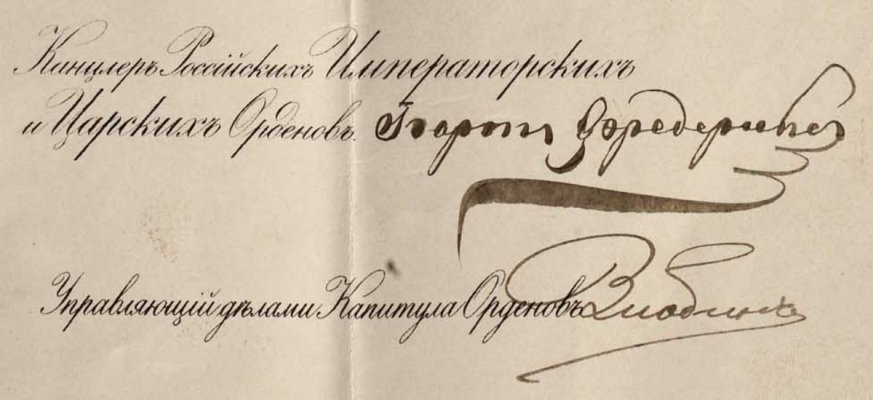 Канцлеръ Россійскихъ Императорскихъ
и Царскихъ Орденовъ. Баронъ Фредериксъ
Управляющій дѣлами Капитула Орденовъ